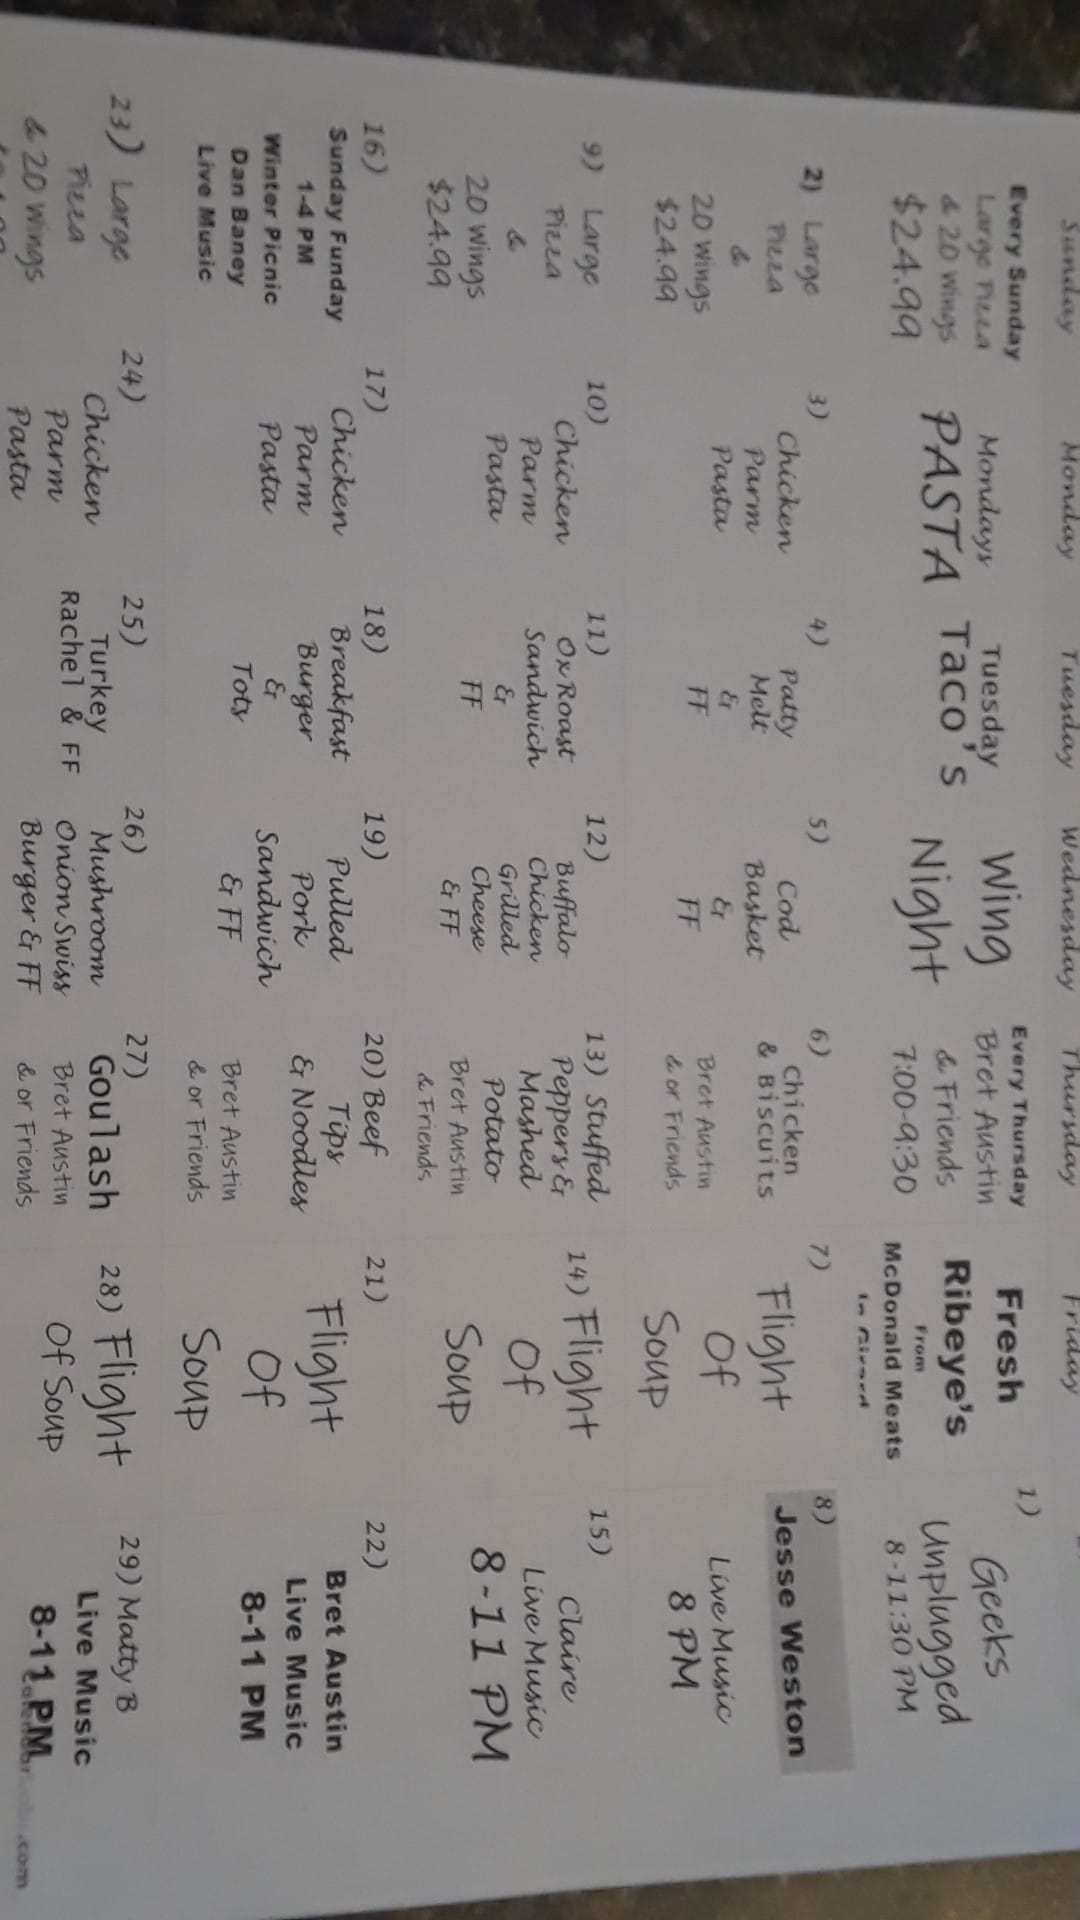 Sunday Monday Tuesday Wednesday Thursday Friday
Every Sunday
Large Pizza
& 20 Wings
$24.99
Mondays
PASTA
Tuesday
Taco's
Wing
Night
Every Thursday
Bret Austin
& Friends
7:00-9:30
Fresh
Ribeye's
From
McDonald Meats
1)
Geeks
Unplugged
8-11:30 PM
2) Large
Pizza
&
20 Wings
$24.99
3)
Chicken
Parm
Pasta
4)
Patty
Melt
&
FF
5)
Cod
Basket
&
FF
6)
Chicken
& Biscuits
Bret Austin
& or Friends
7)
Flight
Of
Soup
8)
Jesse Weston
Live Music
8 PM
9) Large
Pizza
&
20 Wings
$24.99
10)
Chicken
Parm
Pasta
11)
Ox Roast
Sandwich
&
FF
12)
Buffalo
Chicken
Grilled
Cheese
& FF
13) Stuffed
Peppers &
Mashed
Potato
Bret Austin
& Friends
14) Flight
Of
Soup
15)
Claire
Live Music
8-11 PM
16)
Sunday Funday
1-4 PM
Winter Picnic
Dan Baney
Live Music
17)
Chicken
Parm
Pasta
18)
Breakfast
Burger
&
Tots
19)
Pulled
Pork
Sandwich
& FF
20) Beef
Tips
& Noodles
Bret Austin
& or Friends
21)
Flight
Of
Soup
22)
Bret Austin
Live Music
8-11 PM
23) Large
Pizza
& 20 Wings
24)
Chicken
Parm
Pasta
25)
Turkey
Rachel & FF
26)
Mushroom
Onion Swiss
Burger & FF
27)
Goulash
Bret Austin
& or Friends
28) Flight
Of Soup
29) Matty B
Live Music
8-11 PM